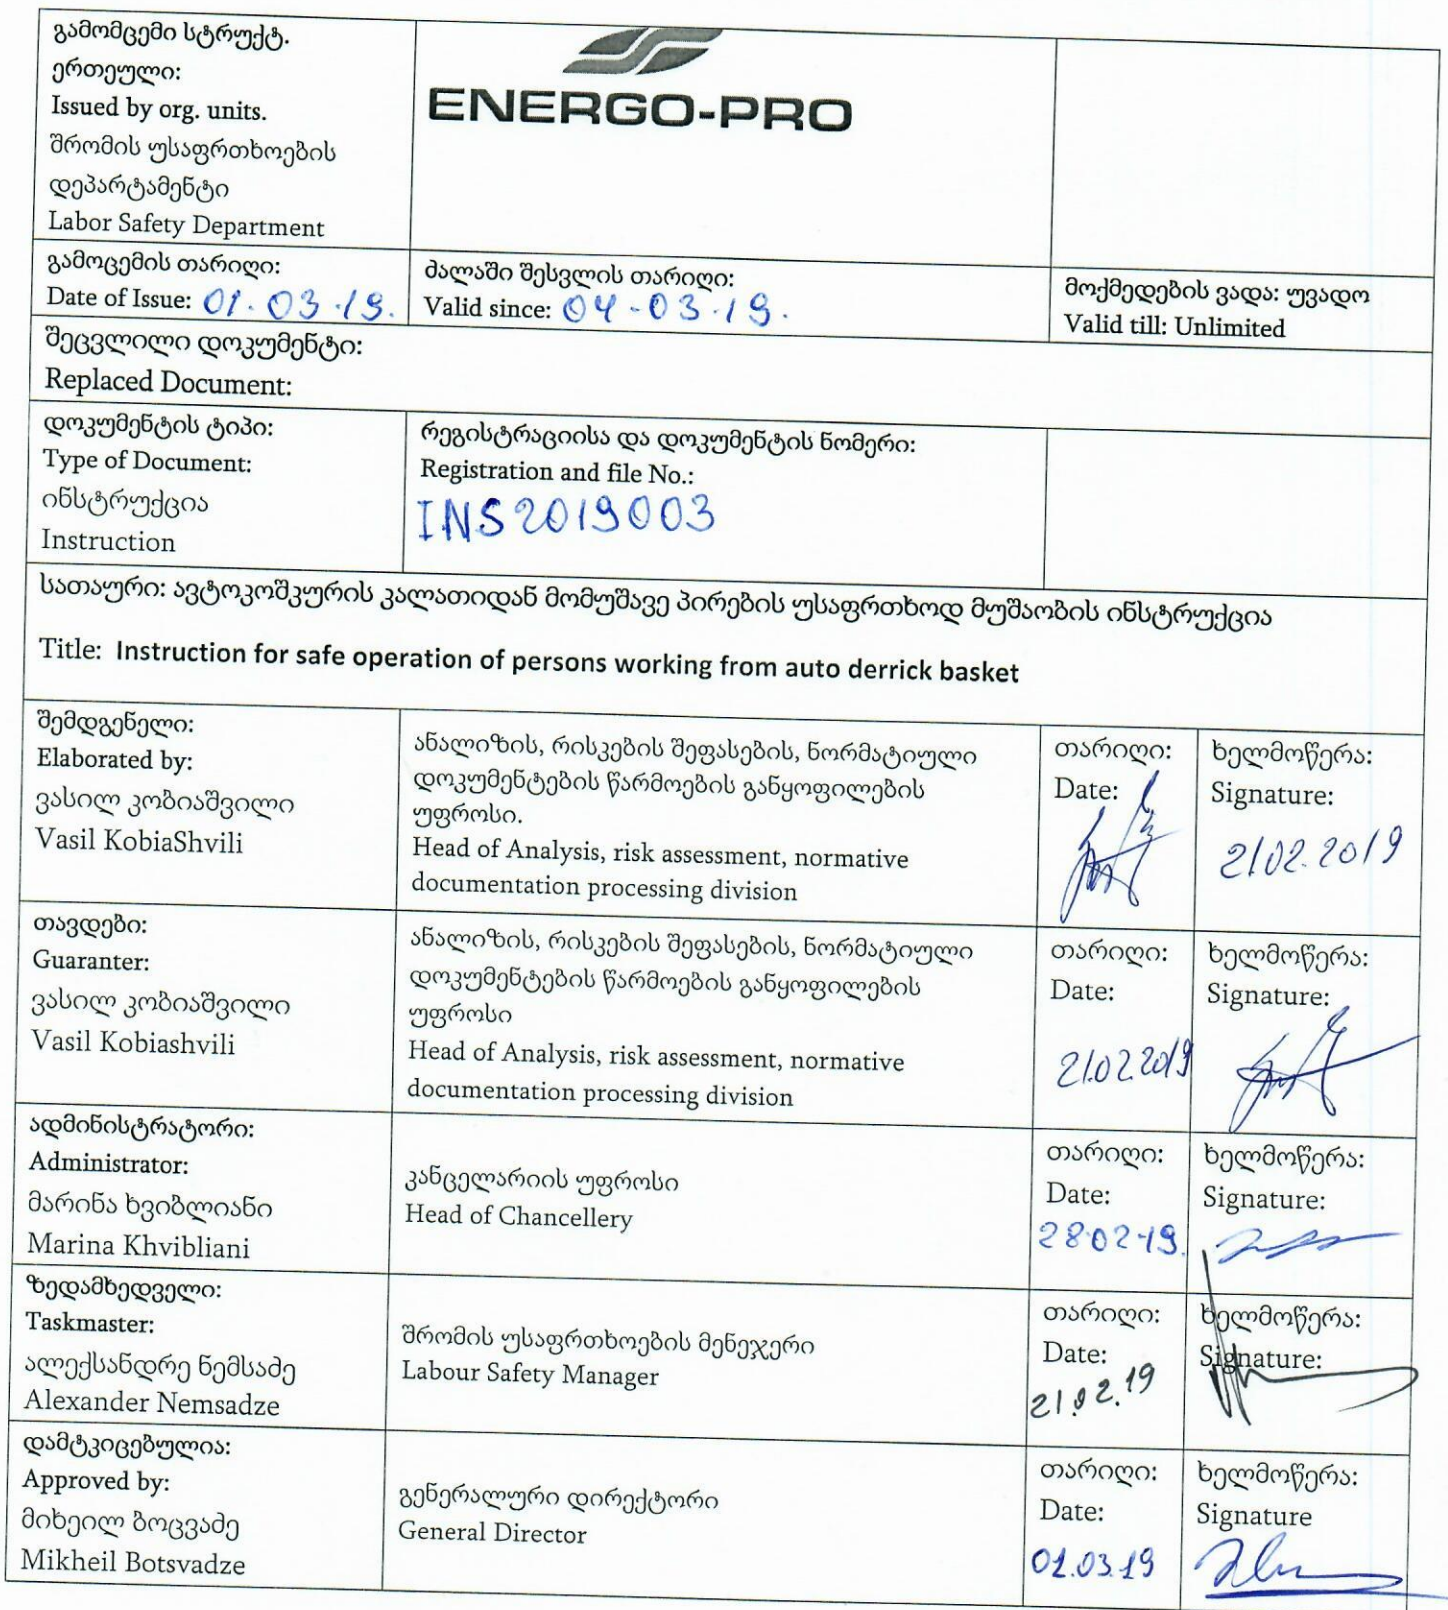 გამომცემი სტრუქტ.
ერთეული:
Issued by org. units.
შრომის უსაფრთხოების
დეპარტამენტი
Labor Safety Department
ENERGO-PRO
გამოცემის თარიღი:
Date of Issue: 01.03.19.
ძალაში შესვლის თარიღი:
Valid since: 04.03.19.
მოქმედების ვადა: უვადო
Valid till: Unlimited
შეცვლილი დოკუმენტი:
Replaced Document:
დოკუმენტის ტიპი:
Type of Document:
ინსტრუქცია
Instruction
რეგისტრაციისა და დოკუმენტის ნომერი:
Registration and file No.:
INS2019003
სათაური: ავტოკოშკურის კალათიდან მომუშავე პირების უსაფრთხოდ მუშაობის ინსტრუქცია
Title: Instruction for safe operation of persons working from auto derrick basket
შემდგენელი:
Elaborated by:
ვასილ კობიაშვილი
Vasil KobiaShvili
ანალიზის, რისკების შეფასების, ნორმატიული
დოკუმენტების წარმოების განყოფილების
უფროსი.
Head of Analysis, risk assessment, normative
documentation processing division
თარიღი:
Date:
ხელმოწერა:
Signature:
21.02.2019
თავდები:
Guaranter:
ვასილ კობიაშვილი
Vasil Kobiashvili
ანალიზის, რისკების შეფასების, ნორმატიული
დოკუმენტების წარმოების განყოფილების
უფროსი
Head of Analysis, risk assessment, normative
documentation processing division
თარიღი:
Date:
21.02.2019
ხელმოწერა:
Signature:
ადმინისტრატორი:
Administrator:
მარინა ხვიბლიანი
Marina Khvibliani
კანცელარიის უფროსი
Head of Chancellery
თარიღი:
Date:
28.02.19.
ხელმოწერა:
Signature:
ზედამხედველი:
Taskmaster:
ალექსანდრე ნემსაძე
Alexander Nemsadze
შრომის უსაფრთხოების მენეჯერი
Labour Safety Manager
თარიღი:
Date:
21.02.19
ხელმოწერა:
Signature:
დამტკიცებულია:
Approved by:
მიხეილ ბოცვაძე
Mikheil Botsvadze
გენერალური დირექტორი
General Director
თარიღი:
Date:
01.03.19
ხელმოწერა:
Signature